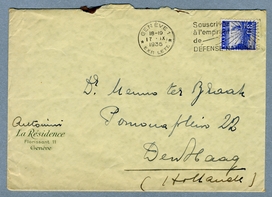 GENÈVE 1
18-19
17. IX.
1936
Souscriv
à l'empr
de
DEFENSE
Dr. Menno ter Braak
Pomonaplein 22
Den Haag
(Hollande)
La Résidence
Florissant, 11
Genève